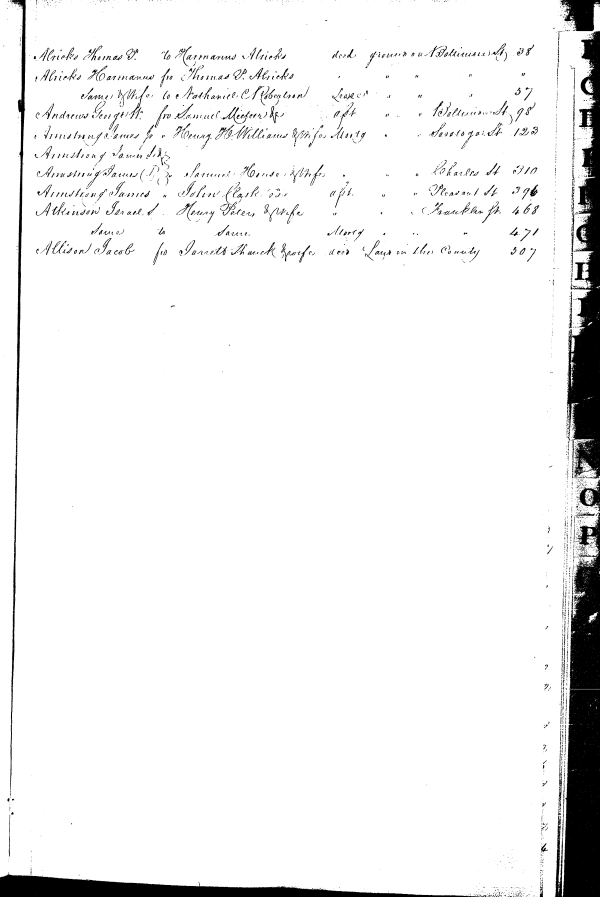 Alricks Thomas P. to Harmanus Alricks deed ground on N Baltimore St 38
Alricks Harmanus fro Thomas P. Alricks " " " " "
Same & Wife to Nathaniel C Robertson Lease " " " 57
Andrews George W. fro Samuel &c apt " " Baltimore St 98
Armstrong James Jr " Henry H. Williams & Wife Mortg " " Saratoga St 123
Armstrong James
Armstrong James Samuel House & Wife " " " Charles St 310
Armstrong James " John Clark apt. " " Pleasant St 396
Atkinson Israel S. " Henry Peters & Wife " " " Franklin St. 468
Same to Same Mortg " " " 471
Allison Jacob fro Jarrett & wife deed Land in the County 507
N
O
P